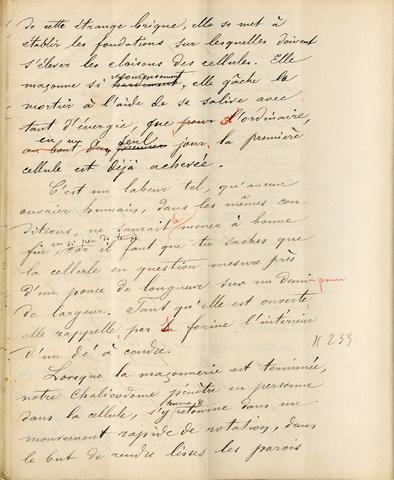 de cette étrange brique, elle se met à
établir les fondations sur lesquelles doivent
s'élever les cloisons des cellules. Elle
maçonne si vigoureusement, elle gâche le
mortier à l'aide de sa salive avec
tant d'énergie, que pour d'ordinaire,
en un seul jour, la première
cellule est déjà achevée.
C'est un labeur tel, qu'aucun
ouvrier humain, dans les mêmes con-
ditions, ne saurait le mener à bonne
fin en si peu de temps, car il faut que tu saches que
la cellule en question mesure près
d'un pouce de longueur sur un demi-pouce
de largeur. Tant qu'elle est ouverte,
elle rappelle par sa forme l'intérieur
d'un dé à coudre.
N 233
Lorsque la maçonnerie est terminée,
notre Chalicodome pénètre en personne
dans la cellule, s'y tourne & retourne dans un
mouvement rapide de rotation, dans
le but de rendre lisses les parois